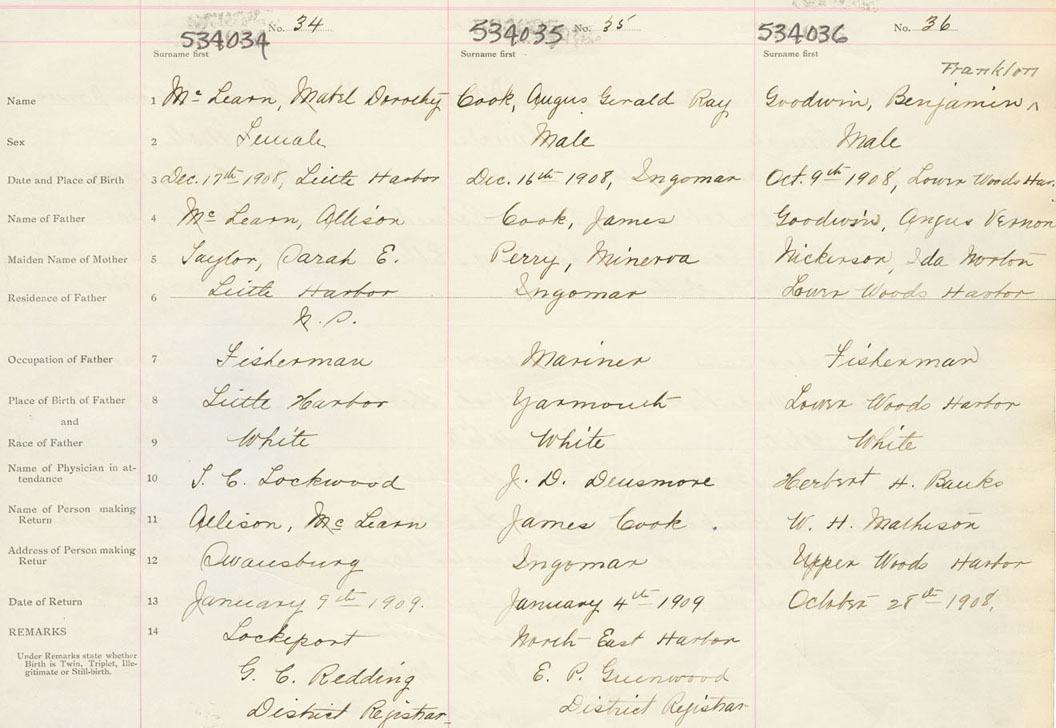 534034 No. 34 534035 No. 35 534036 No. 36
Surname first Surname first Surname first
Franklon
Name 1 Mc Learn, Mabel Dorothy Cook, Angus Gerald Ray Goodwin, Benjamin ^
Sex 2 Female Male Male
Date and Place of Birth 3 Dec. 17th 1908, Little Harbor Dec. 16th 1908, Ingomar Oct. 9th 1908, Lower Woods Har.
Name of Father 4 Mc Learn, Allison Cook, James Goodwin, Angus Vernon
Maiden Name of Mother 5 Taylor, Sarah E. Perry, Minerva Nickerson, Ida Norton
Residence of Father 6 Little Harbor Ingomar Lower Woods Harbor
N.S.
Occupation of Father 7 Fisherman Mariner Fisherman
Place of Birth of Father 8 Little Harbor Yarmouth Lower Woods Harbor
and
Race of Father 9 White White White
Name of Physician in at-
tendance 10 L. C. Lockwood J. D. Densmore Herbert H. Banks
Name of Person making
Return 11 Allison, Mc Learn James Cook W. H. Matheson
Address of Person making
Retur 12 Swansburg Ingomar Upper Woods Harbor
Date of Return 13 January 9th 1909. January 4th 1909 October 28th 1908.
REMARKS 14 Lockeport North East Harbor
Under Remarks state whether
Birth is Twin, Triplet, Ille-
gitimate or Still-birth.
G. C. Redding E. P. Greenwood
District Registrar District Registrar